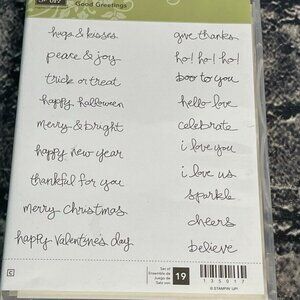 Good Greetings
hugs & kisses
peace & joy
trick or treat
happy halloween
merry & bright
happy new year
thankful for you
merry Christmas
happy valentines day
give thanks
ho! ho! ho!
boo to you
hello love
celebrate
i love you
i love us
sparkle
cheers
believe
C
Set of
Ensemble de
Juego de
Satz von
19
135017
© STAMPIN' UP!